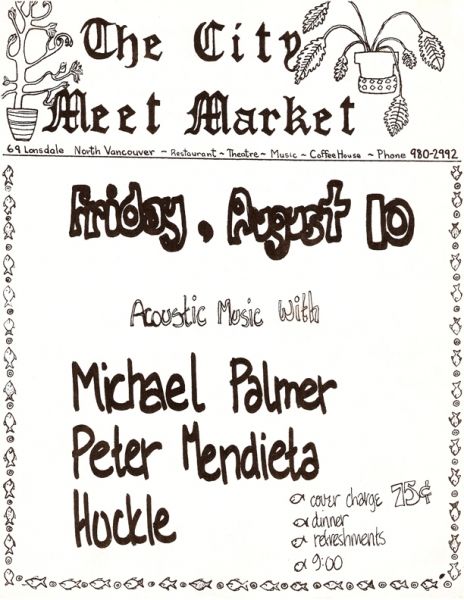 The City
Meet Market
69 Lonsdale North Vancouver ~ Restaurant ~ Theatre ~ Music ~ Coffee House ~ Phone 980-2992
Friday, August 10
Acoustic Music With
Michael Palmer
Peter Mendieta
Huckle
cover charge 75¢
dinner
refreshments
9:00